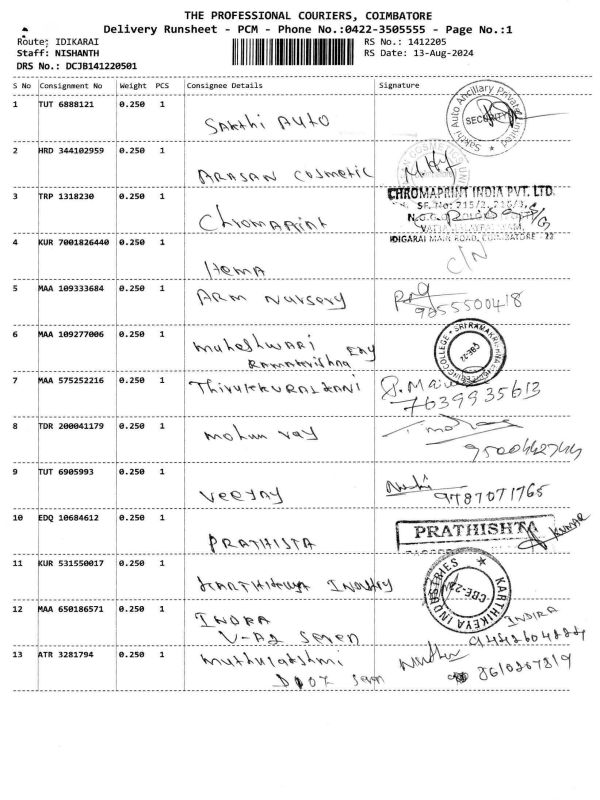 THE PROFESSIONAL COURIERS, COIMBATORE
Delivery Runsheet - PCM - Phone No.:0422-3505555 - Page No.:1
Route: IDIKARAI RS No.: 1412205
Staff: NISHANTH RS Date: 13-Aug-2024
DRS No.: DCJB141220501
S No Consignment No Weight PCS Consignee Details Signature
1 TUT 6888121 0.250 1
Sakthi Auto
Sakthi Auto Ancillary Private Limited
SECURITY
2 HRD 344102959 0.250 1
ARASAN Cosmetic
3 TRP 1318230 0.250 1
Chromaprint
CHROMAPRINT INDIA PVT. LTD.
SF. No: 715/2, 716/3,
IDIGARAI MAIN ROAD, COIMBATORE - 22
4 KUR 7001826440 0.250 1
Hema
C/N
5 MAA 109333684 0.250 1
ARM Nursery
9855500418
6 MAA 109277006 0.250 1
Maheshwari
CBE-22
7 MAA 575252216 0.250 1
7639935613
8 TDR 200041179 0.250 1
Mohun ray
9 TUT 6905993 0.250 1
Veejay
9787071765
10 EDQ 10684612 0.250 1
PRATHISTA
PRATHISHTA
KUMAR
11 KUR 531550017 0.250 1
Karthikeya Industry
KARTHIKEYA INDUSTRIES
CBE-22
12 MAA 650186571 0.250 1
INDRA
V-A2 Seven
INDIRA
13 ATR 3281794 0.250 1
Muthulakshmi
D 107 Seven
8610267819